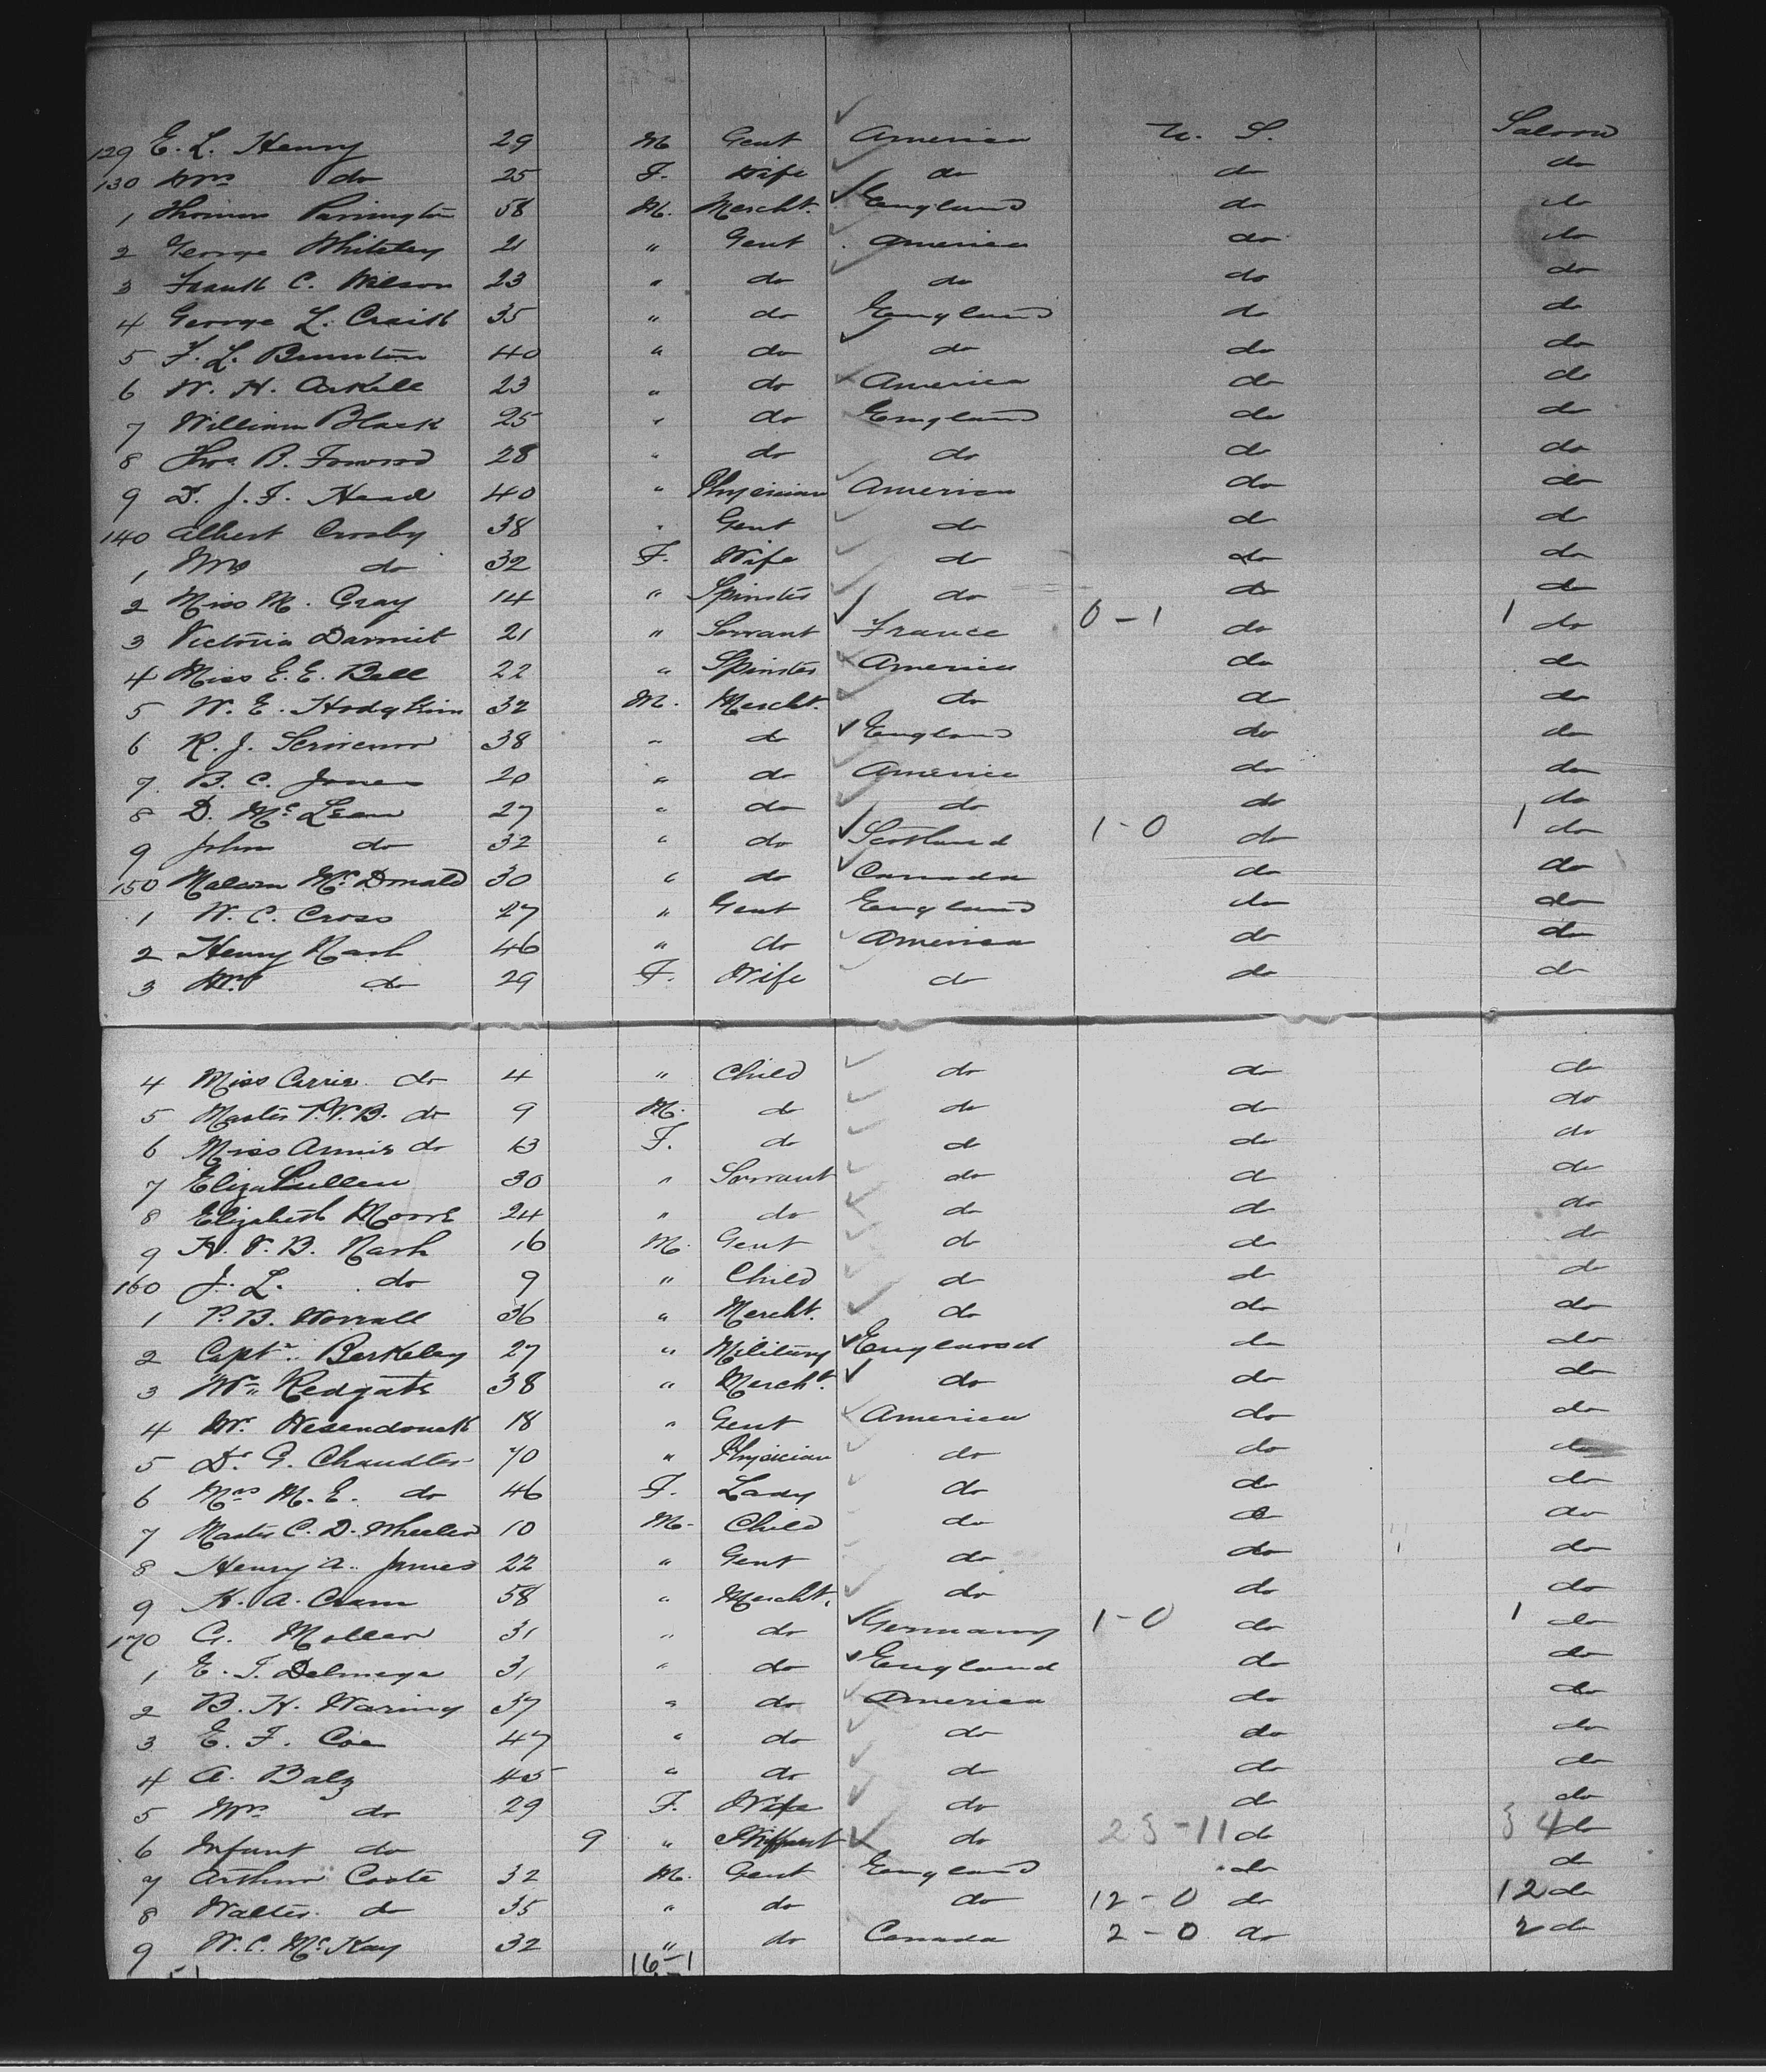 129 E. L. Henry 29 M Gent America U. S. Saloon
130 Mrs do 25 F. Wife do do do
1 Thomas Parrington 58 M. Mercht. England do do
2 George Whiteley 21 " Gent America do do
3 Frank C. Wilson 23 " do do do do
4 George L. Craik 35 " do England do do
5 F. L. Brunton 40 " do do do do
6 W. H. Arkell 23 " do America do do
7 William Black 25 " do England do do
8 Thos B. Forwood 28 " do do do do
9 D. J. F. Head 40 " Physician America do do
140 Albert Crosby 38 " Gent do do do
1 Mrs do 32 F. Wife do do do
2 Miss M. Gray 14 " Spinster do do do
3 Victoria 21 " Servant France 0-1 do 1 do
4 Miss E. E. Bell 22 " Spinster America do do
5 W. E. Hodgkin 32 M. Mercht. do do do
6 R. J. Scrivenor 38 " do England do do
7 B. C. Jones 20 " do America do do
8 D. McLean 27 " do do do do
9 John do 32 " do Scotland 1-0 do 1 do
150 Malcom McDonald 30 " do Canada do do
1 W. C. Cross 27 " Gent England do do
2 Henry Nash 46 " do America do do
3 Mrs do 29 F. Wife do do do
4 Miss Carrie do 4 " Child do do do
5 Master P. V. B. do 9 M. do do do do
6 Miss Annie do 13 F. do do do do
7 Eliza 30 " Servant do do do
8 Elizabeth Moore 24 " do do do do
9 H. V. B. Nash 16 M. Gent do do do
160 J. L. do 9 " Child do do do
1 P. B. Worrall 36 " Mercht. do do do
2 Captn. Berkeley 27 " Military England do do
3 Wm Redgate 38 " Mercht. do do do
4 Mr. Wesendonck 18 " Gent America do do
5 Dr. G. Chandler 70 " Physician do do do
6 Mrs M. E. do 46 F. Lady do do do
7 Master C. D. Wheeler 10 M. Child do do do
8 Henry A. James 22 " Gent do do do
9 H. A. Cram 58 " Mercht. do do do
170 G. Moller 31 " do Germany 1-0 do 1 do
1 E. T. Delmege 31 " do England do do
2 B. H. Waring 37 " do America do do
3 E. F. Coe 47 " do do do do
4 A. Balz 45 " do do do do
5 Mrs do 29 F. Wife do do do
6 Infant do 9 " Infant do 23-11 do 34 do
7 Arthur Coote 32 M. Gent England do do
8 Walter do 35 " do do 12-0 do 12 do
9 W. C. McKay 32 " do Canada 2-0 do 2 do
16-1